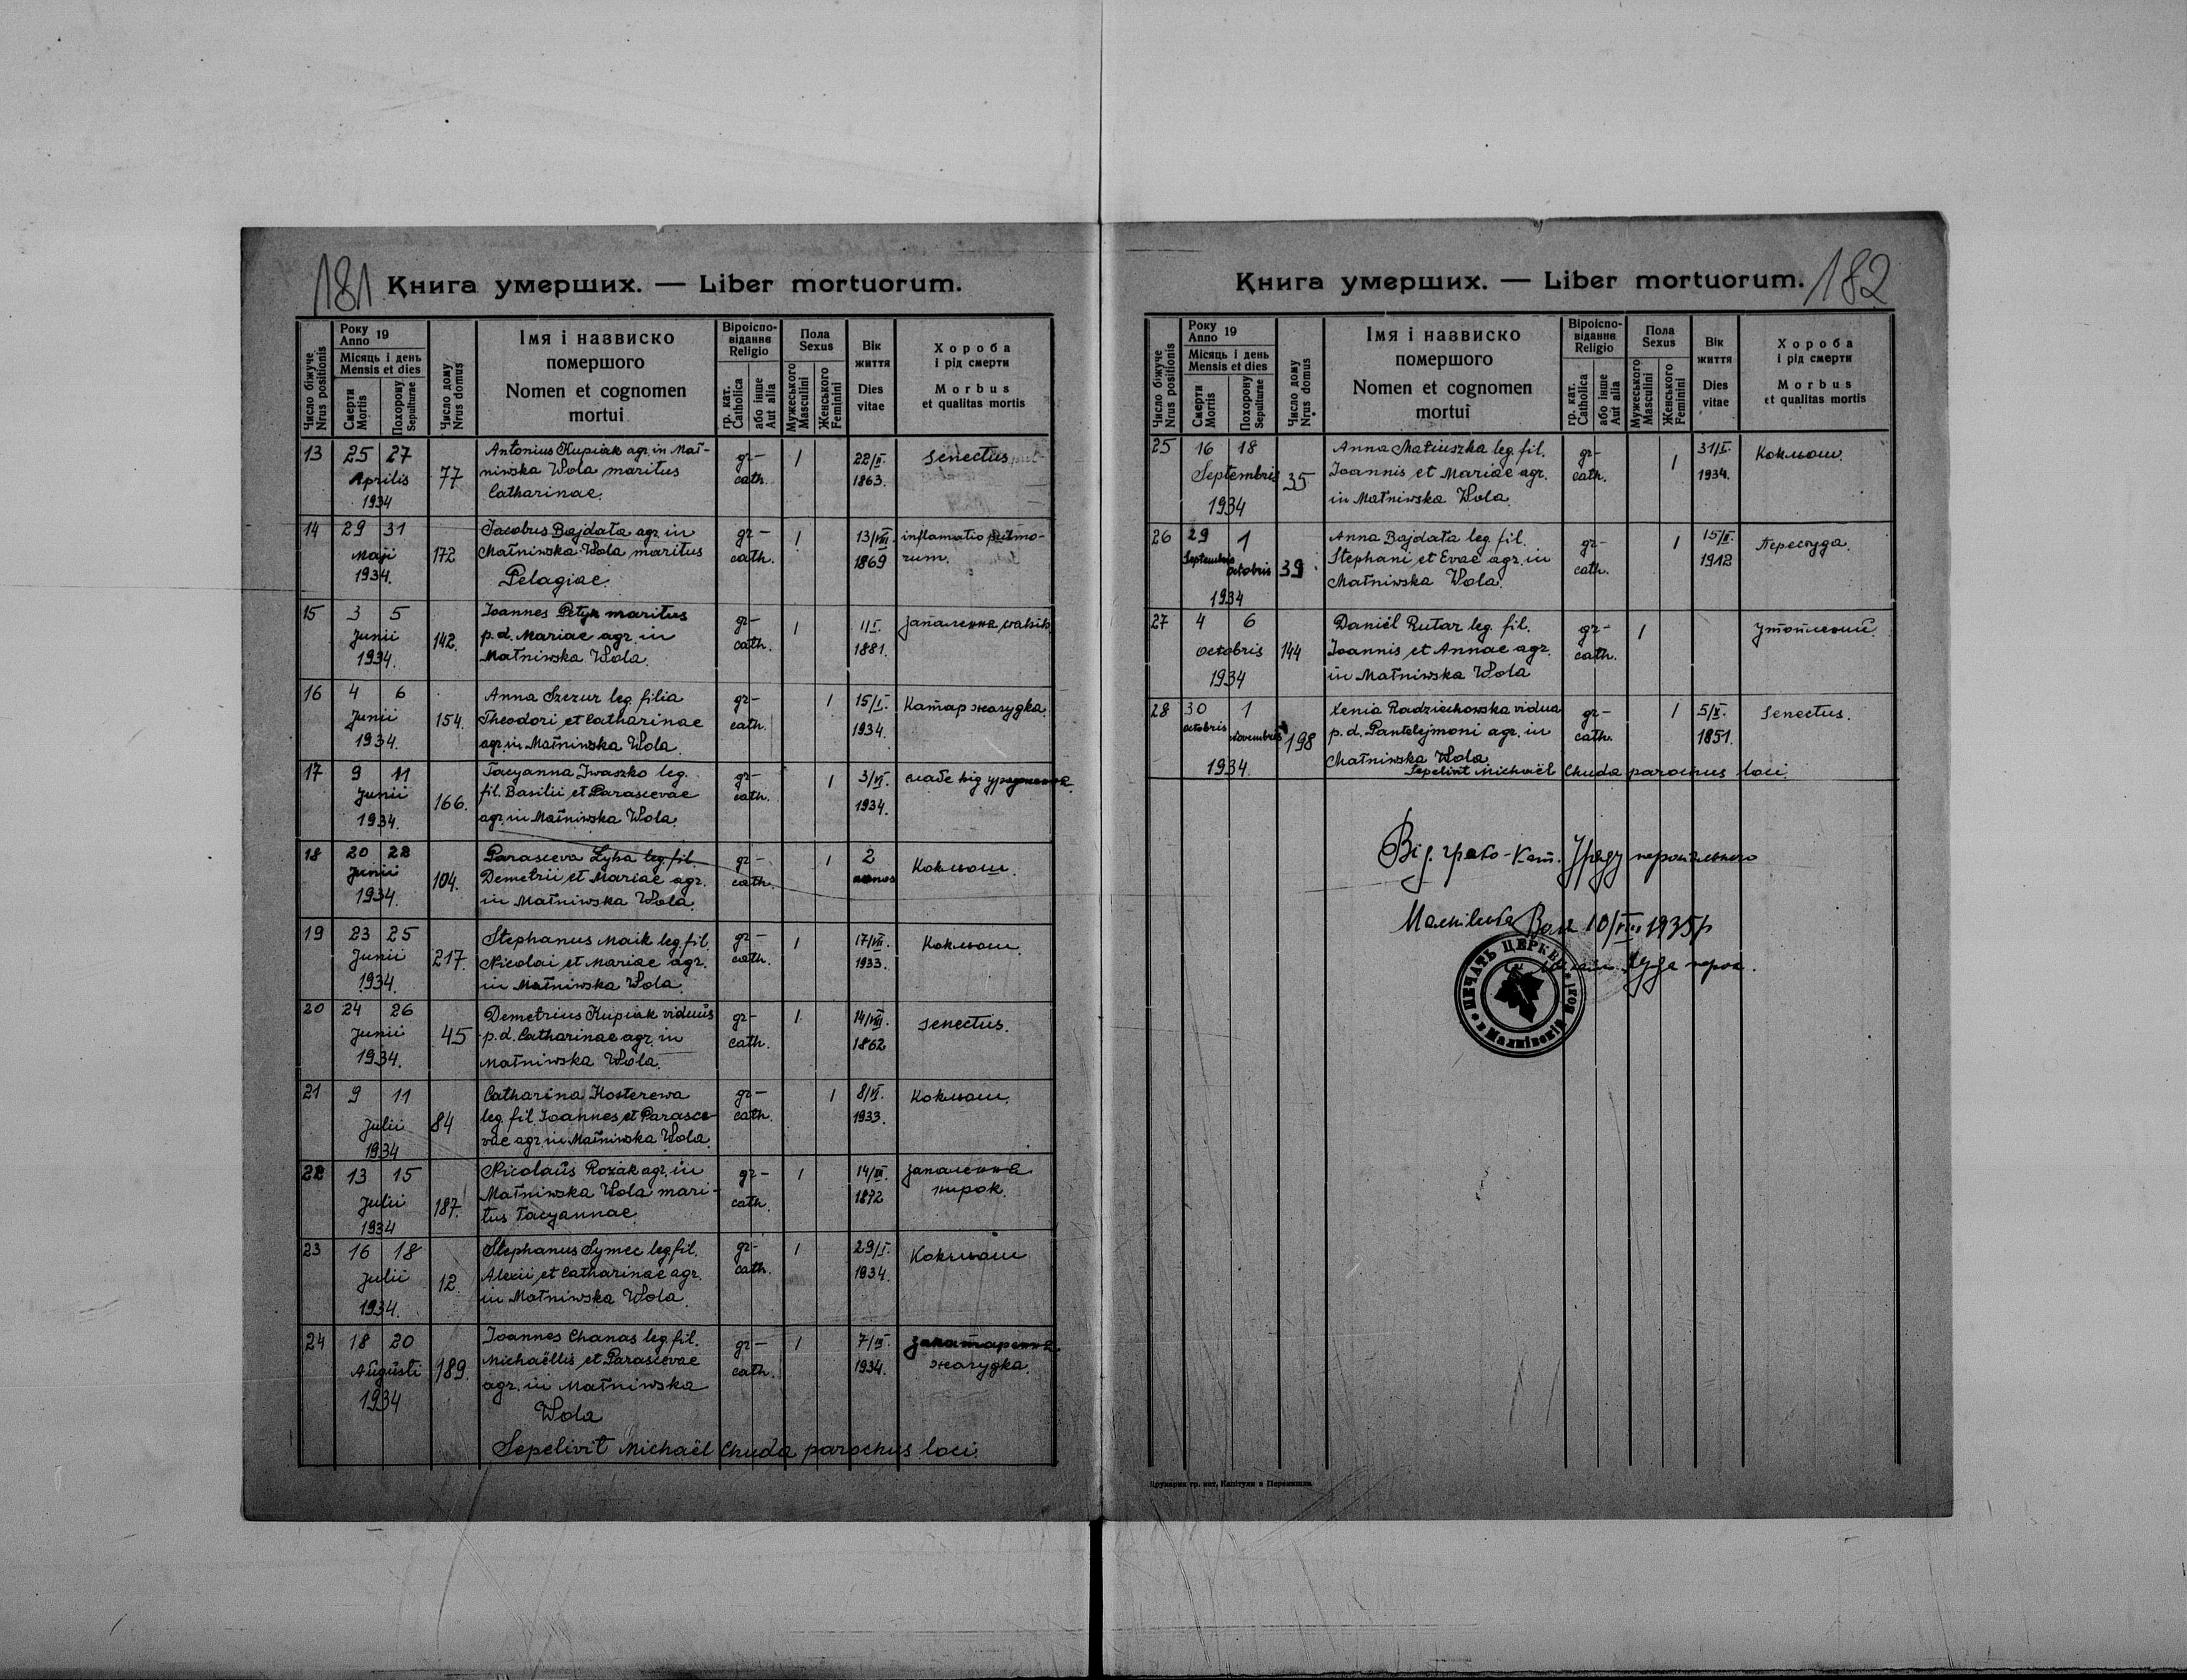 181
Книга умерших. — Liber mortuorum.
Число біжуче
Nrus positionis
Року 19
Anno
Місяць і день
Mensis et dies
Смерти
Mortis
Похорону
Sepulturae
Число дому
Nrus domus
Імя і назвиско
помершого
Nomen et cognomen
mortui
Віроіспо-
відання
Religio
гр. кат.
Catholica
або інше
Aut alia
Пола
Sexus
Мужеського
Masculini
Женського
Feminini
Вік
життя
Dies
vitae
Хороба
і рід смерти
Morbus
et qualitas mortis
13 25 27 Antonius Kupiak agr. in Mał- gr- 1 22/II. senectus
Aprilis 77 niwska Wola maritus cath. 1863.
1934 Catharinae.
14 29 31 Jacobus Bajdała agr. in gr- 1 13/VIII. inflamatio pulmo-
Maji 172 Małniwska Wola maritus cath. 1869 rum.
1934. Pelagiae.
15 3 5 Joannes Petyk maritus gr- 1 1/I. запалення
Junii 142. p. d. Mariae agr. in cath. 1881.
1934. Małniwska Wola.
16 4 6 Anna Szczur leg. filia gr- 1 15/I. Катар жолудка.
Junii 154. Theodori et Catharinae cath. 1934.
1934. agr. in Małniwska Wola.
17 9 11 Tacyanna Iwaszko leg. gr- 1 3/VI. слабе від уродження.
Junii 166. fil. Basilii et Parascevae cath. 1934.
1934. agr. in Małniwska Wola.
18 20 22 Parasceva Łyha leg. fil. gr- 1 2 Кокльош.
Junii 104. Demetrii et Mariae agr. cath. annos
1934. in Małniwska Wola.
19 23 25 Stephanus Maik leg. fil. gr- 1 17/VII. Кокльош
Junii 217. Nicolai et Mariae agr. cath. 1933.
1934. in Małniwska Wola.
20 24 26 Demetrius Kupiak viduus gr- 1 14/VIII. senectus.
Junii 45 p. d. Catharinae agr. in cath. 1862
1934. Małniwska Wola.
21 9 11 Catharina Kosterewa gr- 1 8/VI. Кокльош.
Julii 84 leg. fil. Joannes et Parasce- cath. 1933.
1934 vae agr. in Małniwska Wola.
22 13 15 Nicolaus Rozak agr. in gr- 1 запалення
Julii 187. Małniwska Wola mari- cath. 1872 нирок.
1934 tus Tacyannae
23 16 18 Stephanus Symec leg. fil. gr- 1 29/I. Кокльош
Julii 12. Alexii et Catharinae agr. cath. 1934.
1934. in Małniwska Wola.
24 18 20 Joannes Chanas leg. fil. gr- 1 закатарення
Augusti 189. Michaëllis et Parascevae cath. 1934. жолудка.
1934 agr. in Małniwska
Wola
Sepelivit Michaël Chuda parochus loci.
Книга умерших. — Liber mortuorum.
182
Число біжуче
Nrus positionis
Року 19
Anno
Місяць і день
Mensis et dies
Смерти
Mortis
Похорону
Sepulturae
Число дому
Nrus domus
Імя і назвиско
помершого
Nomen et cognomen
mortui
Віроіспо-
відання
Religio
гр. кат.
Catholica
або інше
Aut alia
Пола
Sexus
Мужеського
Masculini
Женського
Feminini
Вік
життя
Dies
vitae
Хороба
і рід смерти
Morbus
et qualitas mortis
25 16 18 Anna Matiuszka leg. fil. gr- 1 31/I. Кокльош.
Septembris 35 Joannis et Mariae agr. cath. 1934.
1934 in Małniwska Wola.
26 29 1 Anna Bajdała leg. fil. gr- 1 15/II. Перестуда.
Septembris octobris 39 Stephani et Evae agr. in cath. 1912
1934 Małniwska Wola.
27 4 6 Daniël Rutar leg. fil. gr- 1 утоплений.
octobris 144 Joannis et Annae agr. cath.
1934 in Małniwska Wola
28 30 1 Xenia Radziechowska vidua gr- 1 5/X. senectus.
octobris novembris 198 p. d. Pantelejmoni agr. in cath. 1851.
1934. Małniwska Wola.
Sepelivit Michaël Chuda parochus loci.
Від греко-кат. Уряду парохіяльного
Малнівська Воля 10/VIII 1935 р
Худа парох.
ПЕЧАТЬ ЦЕРЬКВИ
в Малнівській Волі
Друкарня гр. кат. Капітули в Перемишли.